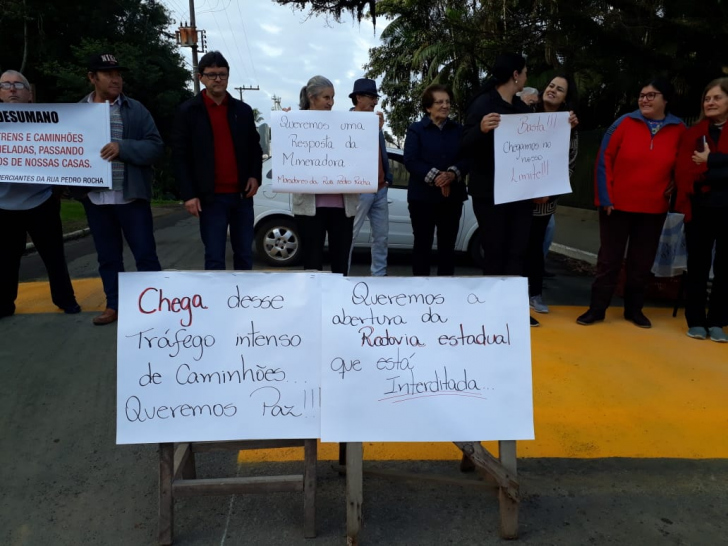 DESUMANO
TRENS E CAMINHÕES
NELADAS, PASSANDO
OS DE NOSSAS CASAS.
ERCIANTES DA RUA PEDRO ROCHA
Queremos uma
Resposta da
Mineradora
Moradores da Rua Pedro Rocha
Basta!!!
Chegamos no
nosso
Limite!!!
Chega desse
Tráfego intenso
de Caminhões...
Queremos Paz!!!
Queremos a
abertura da
Rodovia estadual
que está
Interditada...